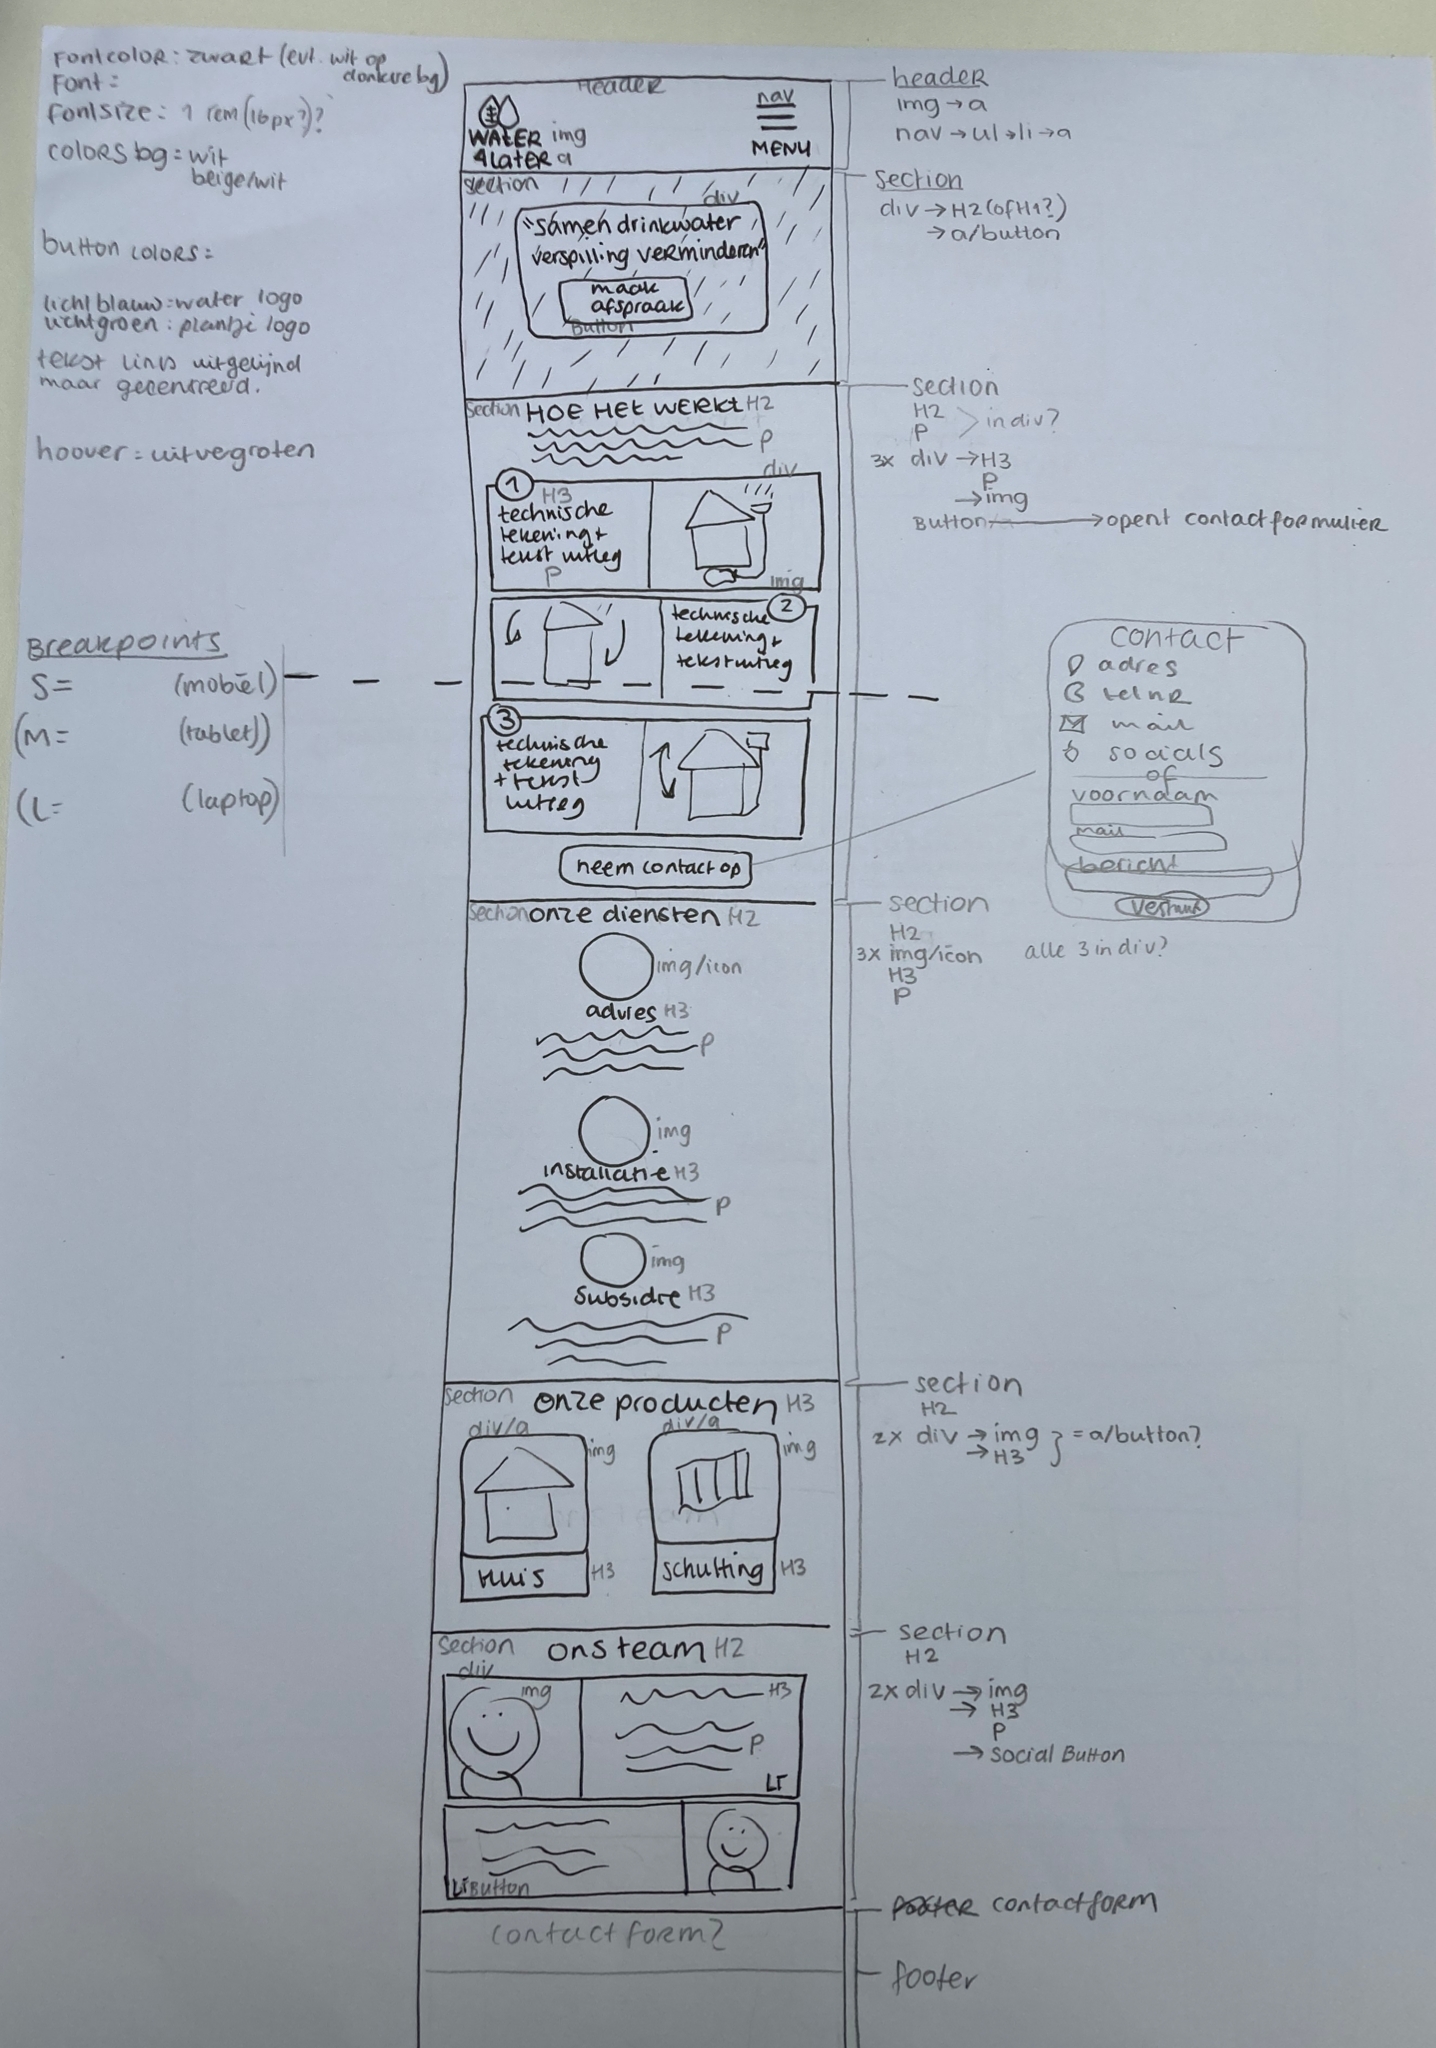 Fontcolor: zwart (evt. wit op
donkere bg)
Font:
fontsize: 1 rem (16px?)?
colors bg = wit
beige/wit
button colors:
lichtblauw: water logo
lichtgroen: plantje logo
tekst links uitgelijnd
maar gecentreerd.
hoover = uitvegroten
Breakpoints
S= (mobiel)
(M= (tablet))
(L= (laptop)
Header
nav
WATER img
4LATER a
MENU
section
div
"samen drinkwater
verspilling verminderen"
maak
afspraak
Button
section HOE HET WERKT H2
P
div
1
H3
technische
tekening +
tekst uitleg
P
img
2
technische
tekening +
tekst uitleg
3
technische
tekening
+ tekst
uitleg
neem contact op
section onze diensten H2
img/icon
advies H3
P
img
installatie H3
P
img
Subsidie H3
P
section onze producten H3
div/a div/a
img img
Huis H3
schutting H3
section ons team H2
div
img
H3
P
LI
LI Button
contactform?
header
img → a
nav → ul → li → a
section
div → H2 (of H1?)
→ a/button
section
H2
P
in div?
3x div → H3
P
→ img
Button → opent contactformulier
contact
adres
telnr
mail
socials
of
voornaam
mail
bericht
verstuur
section
H2
3x img/icon alle 3 in div?
H3
P
section
H2
2x div → img
→ H3
= a/button?
section
H2
2x div → img
→ H3
P
→ social Button
footer contactform
footer